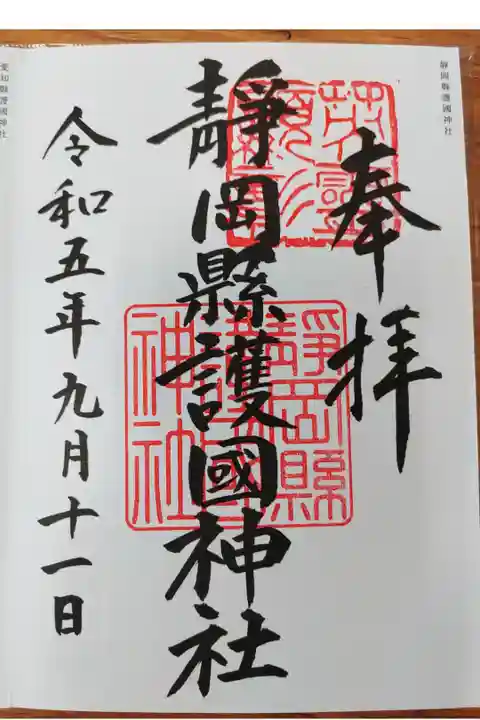 靜岡縣護國神社
奉拝
靜岡縣護國神社
靜岡縣
護國
神社
令和五年九月十一日
愛知縣護國神社